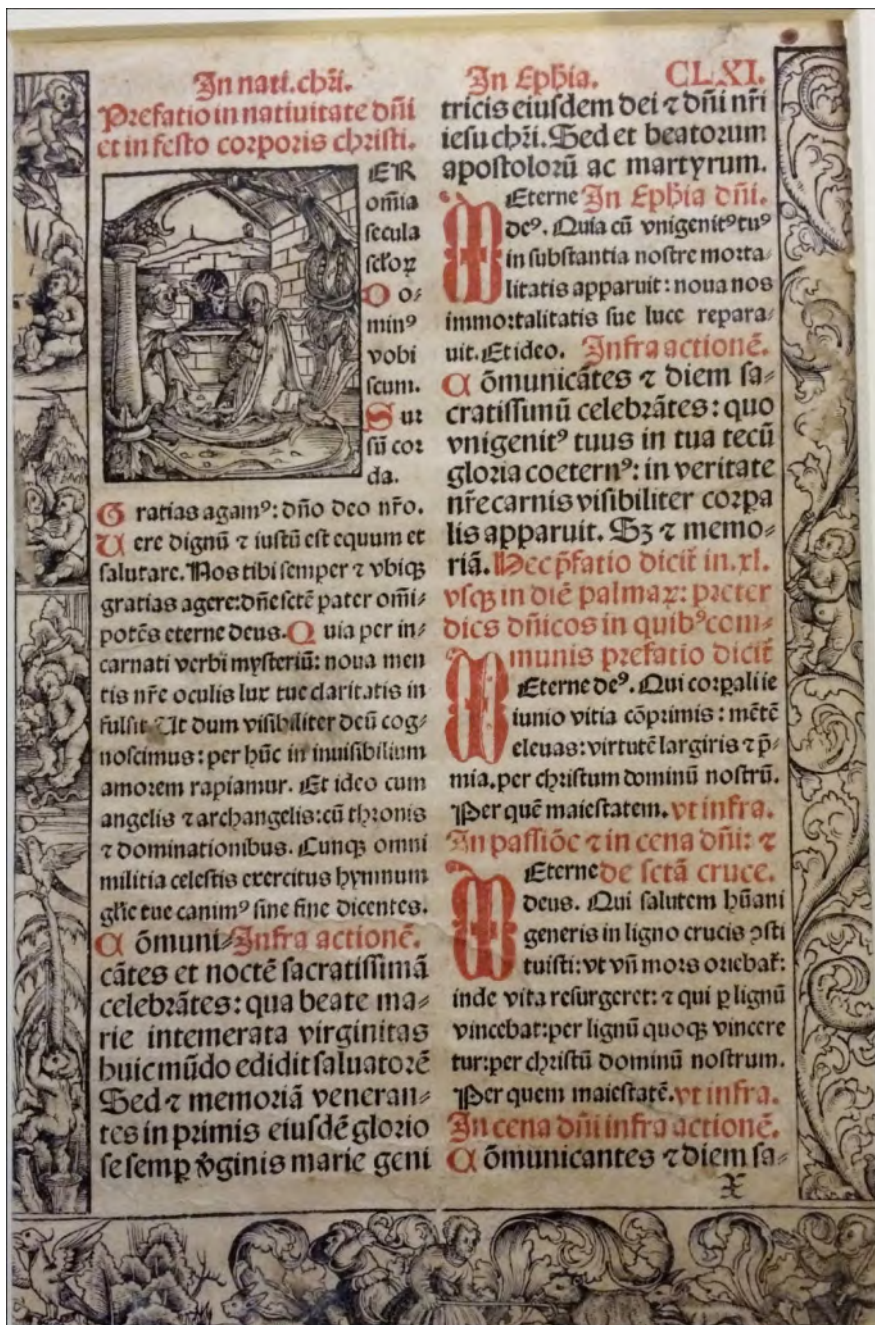 In nati. chři.
Prefatio in natiuitate dñi
et in festo corporis christi.
ER
om̄ia
secula
scloꝝ
D o⸗
minꝰ
vobi
scum.
S ur
sū cor
da.
G ratias agamꝰ: dño deo nr̄o.
U ere dignū ⁊ iustū est equum et
salutare. Nos tibi semper ⁊ vbiqꝫ
gratias agere: dñe sctē pater om̄i⸗
potēs eterne deus. Q uia per in⸗
carnati verbi mysteriū: noua men
tis nr̄e oculis lux tue claritatis in
fulsit. Ut dum visibiliter deū cog⸗
noscimus: per hūc in inuisibilium
amorem rapiamur. Et ideo cum
angelis ⁊ archangelis: cū thronis
⁊ dominationibus. Cunqꝫ omni
militia celestis exercitus hymnum
glīe tue canimꝰ sine fine dicentes.
C ōmuni⸗ Infra actionē.
cātes et noctē sacratissimā
celebrātes: qua beate ma⸗
rie intemerata virginitas
huic mūdo edidit saluatorē
Sed ⁊ memoriā veneran⸗
tes in primis eiusdē glorio
se semꝑ v̄ginis marie geni
In Ephia. CLXI.
tricis eiusdem dei ⁊ dñi nr̄i
iesu chři. Sed et beatorum
apostolorū ac martyrum.
Eterne In Ephia dñi.
deꝰ. Quia cū vnigenitꝰ tuꝰ
in substantia nostre morta⸗
litatis apparuit: noua nos
immortalitatis sue luce repara⸗
uit. Et ideo. Infra actionē.
C ōmunicātes ⁊ diem sa⸗
cratissimū celebrātes: quo
vnigenitꝰ tuus in tua tecū
gloria coeternꝰ: in veritate
nr̄e carnis visibiliter corpa
lis apparuit. Sꝫ ⁊ memo⸗
riā. Hec p̄fatio dicit̄ in. xl.
vsqꝫ in diē palmaꝝ: preter
dies dñicos in quibꝰ com⸗
munis prefatio dicit̄
Eterne deꝰ. Qui corꝑali ie
iunio vitia cōprimis: mētē
eleuas: virtutē largiris ⁊ p̄⸗
mia. per christum dominū nostrū.
Per quē maiestatem. vt infra.
In passiōe ⁊ in cena dñi: ⁊
Eterne de sctā cruce.
deus. Qui salutem hūani
generis in ligno crucis ꝯsti
tuisti: vt vn̄ mors oriebat̄:
inde vita resurgeret: ⁊ qui ꝑ lignū
vincebat: per lignū quoqꝫ vincere
tur: per christū dominū nostrum.
Per quem maiestatē. vt infra.
In cena dñi infra actionē.
C ōmunicantes ⁊ diem sa⸗
X